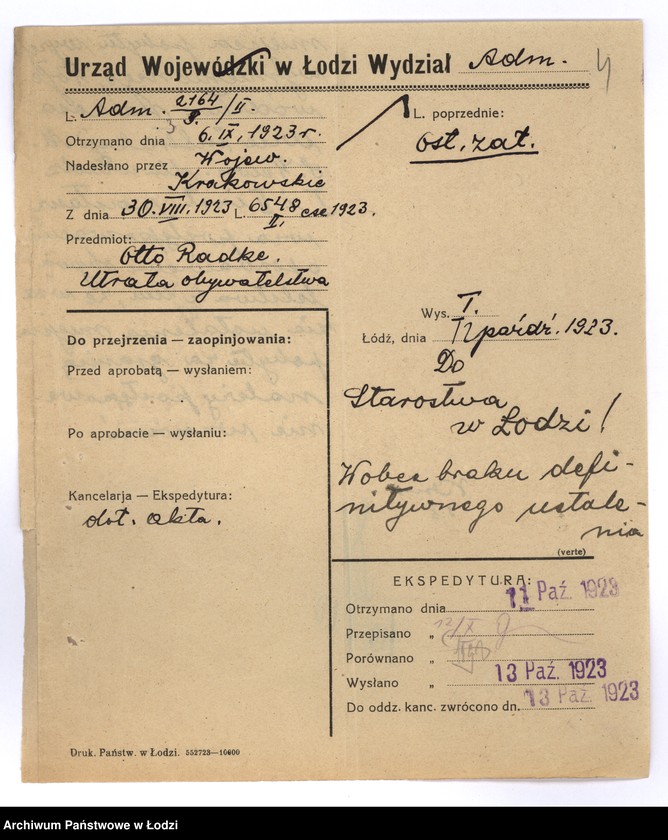 Urząd Wojewódzki w Łodzi Wydział Adm.
L. Adm. 2164/II.
Otrzymano dnia 6. IX, 1923 r.
Nadesłano przez Wojew.
Krakowskie
Z dnia 30. VIII. 1923 L. 6548/II. 1923.
Przedmiot:
Otto Radke.
Utrata obywatelstwa
L. poprzednie:
ost. zał.
Do przejrzenia — zaopinjowania:
Przed aprobatą — wysłaniem:
Po aprobacie — wysłaniu:
Kancelarja — Ekspedytura:
dot. akta.
Wys. T.
Łódź, dnia paźdź. 1923.
Do
Starostwa
w Łodzi!
Wobec braku defi-
nitywnego ustale-
nia
(verte)
EKSPEDYTURA:
Otrzymano dnia 11 Paź. 1923
Przepisano " 12/X
Porównano "
Wysłano " 13 Paź. 1923
Do oddz. kanc. zwrócono dn. 13 Paź. 1923
Druk. Państw. w Łodzi. 552723—10000
Archiwum Państwowe w Łodzi